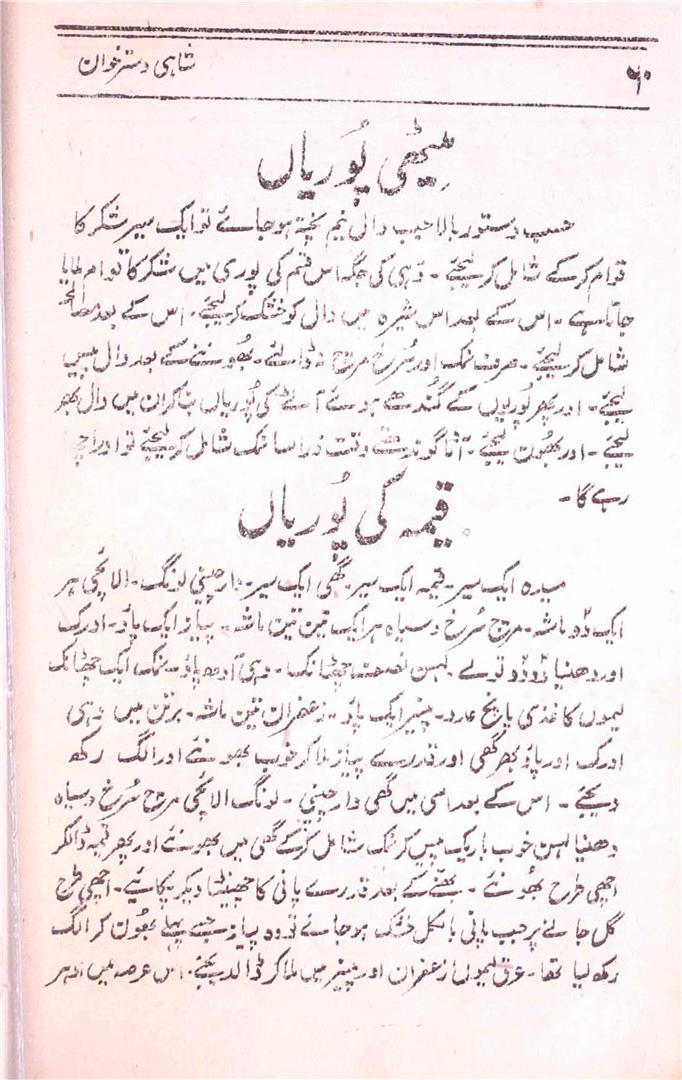 ۶۰
شاہی دسترخوان
میٹھی پُوریاں
حسب دستور بالا جب دال نیم پختہ ہو جائے تو ایک سیر شکر کا
قوام کر کے شامل کر لیجئے۔ دہی کی جگہ اس قسم کی پوری میں شکر کا قوام ملایا
جاتا ہے۔ اس کے بعد اس شیرہ میں دال کو خشک کر لیجئے۔ اس کے بعد مصالحہ
شامل کر لیجئے۔ صرف نمک اور سُرخ مرچ نہ ڈالئے۔ بھُوننے کے بعد دال پیس
لیجئے۔ اور پھر پُوریوں کے گُندھے ہوئے آٹے کی پُوریاں بنا کر ان میں دال بھر
لیجئے۔ اور بھُون لیجئے۔ آٹا گوندھتے وقت ذرا سا نمک شامل کر لیجئے تو اور اچھا
رہے گا۔
قیمہ کی پُوریاں
میدہ ایک سیر۔ قیمہ ایک سیر۔ گھی ایک سیر۔ دارچینی لونگ۔ الائچی ہر
ایک دو ماشہ۔ مرچ سُرخ و سیاہ ہر ایک تین تین ماشہ۔ پیاز ایک پاؤ۔ ادرک
اور دھنیا دو دو تولے۔ لہسن نصف چھٹانک۔ دہی آدھ پاؤ۔ نمک ایک چھٹانک
لیموں کاغذی پانچ عدد۔ پنیر ایک پاؤ۔ زعفران تین ماشہ۔ برتن میں دہی
ادرک اور پاؤ بھر گھی اور قدرے پیاز ملا کر خوب بھونئے اور الگ رکھ
دیجئے۔ اس کے بعد اسی میں گھی دارچینی۔ لونگ الائچی مرچ سُرخ و سیاہ
دھنیا لہسن خوب باریک پیس کر نمک شامل کر کے گھی میں بھونئے اور پھر قیمہ ڈالکر
اچھی طرح بھُونئے۔ بھننے کے بعد قدرے پانی کا چھینٹا دیکر پکائیے۔ اچھی طرح
گل جانے پر جب پانی بالکل خشک ہو جائے تو وہ پیاز جسے پہلے بھُون کر الگ
رکھ لیا تھا۔ عرق لیموں زعفران اور پنیر میں ملا کر ڈالدیجئے۔ اس عرصہ میں ادھر